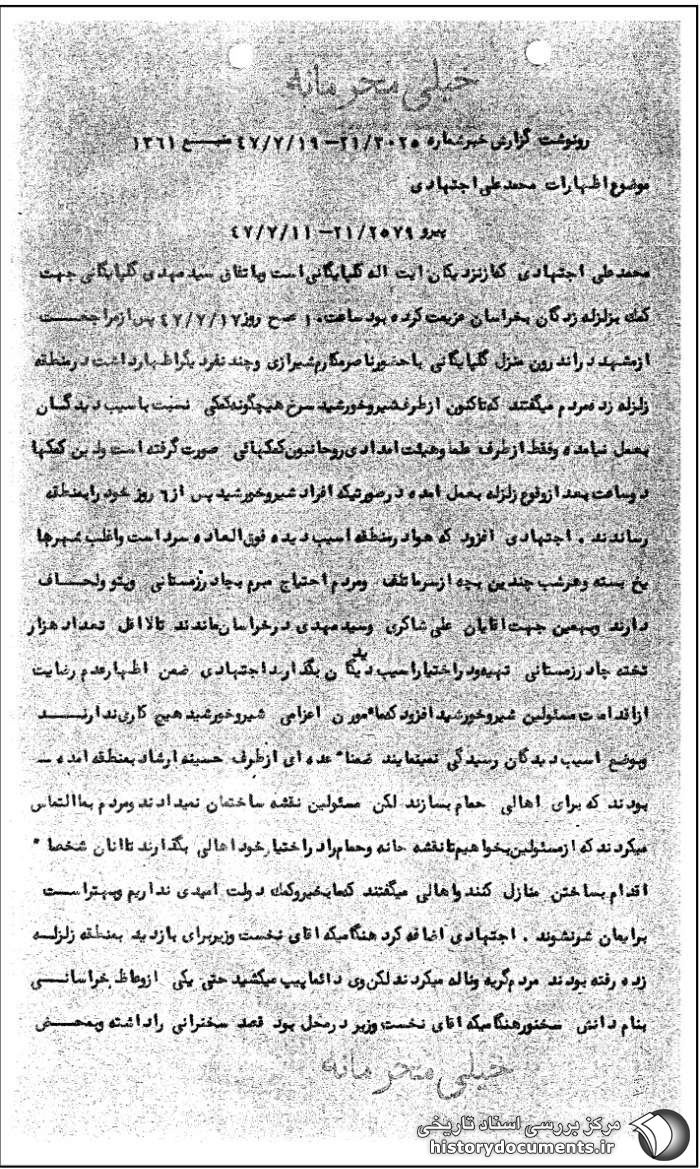 خیلی محرمانه
رونوشت گزارش خبر شماره ۲۱/۳۰۲۵ – ۴۷/۷/۱۹ منبع ۱۳۶۱
موضوع اظهارات محمدعلی اجتهادی
پیرو ۲۱/۲۵۷۹ – ۴۷/۷/۱۱
محمدعلی اجتهادی که از نزدیکان ایت اله گلپایگانی است و باتفاق سید مهدی گلپایگانی جهت
کمک بزلزله زدگان بخراسان عزیمت کرده بود ساعت ۱۰ صبح روز ۴۷/۷/۱۷ پس از مراجعت
از مشهد در اندرون منزل گلپایگانی با حضور ناصر مکارم شیرازی و چند نفر دیگر اظهار داشت در منطقه
زلزله زده مردم میگفتند که تاکنون از طرف شیر و خورشید سرخ هیچگونه کمکی نسبت با سیب دیدگان
بعمل نیامده و فقط از طرف علما و هیئت امدادی روحانیون کمکهائی صورت گرفته است و این کمکها
دو ساعت بعد از وقوع زلزله بعمل امده در صورتیکه افراد شیر و خورشید پس از ۶ روز خود را بمنطقه
رساندند . اجتهادی افزود که هوا در منطقه اسیب دیده فوق العاده سرد است و اغلب شهرها
یخ بسته و هر شب چندین بچه از سرما تلف و مردم احتیاج مبرم بچادر زمستانی و پتو و لحاف
دارند و بهمین جهت اقایان علی شاکری و سید مهدی در خراسان ماندند تا لااقل تعداد هزار
تخته چادر زمستانی تهیه و در اختیار اسیب دیدگان بگذارند اجتهادی ضمن اظهار عدم رضایت
از اقدامات مسئولین شیر و خورشید افزود که مأمورین اعزامی شیر و خورشید هیچ کاری ندارند
و بوضع اسیب دیدگان رسیدگی نمینمایند ضمناً عده ای از طرف حسینه ارشاد بمنطقه امده
بودند که برای اهالی حمام بسازند لکن مسئولین نقشه ساختمان نمیدادند و مردم بما التماس
میکردند که از مسئولین بخواهیم تا نقشه خانه و حمام را در اختیار خود اهالی بگذارند تا انان شخصاً
اقدام بساختن منازل کنند و اهالی میگفتند که ما بخیر و کمک دولت امیدی نداریم و بهتر است
برایمان شر نشوند . اجتهادی اضافه کرد هنگامیکه اقای نخست وزیر برای بازدید بمنطقه زلزله
زده رفته بودند مردم گریه و ناله میکردند لکن وی دائما پیپ میکشید حتی یکی از وعاظ خراسانی
بنام دانش سخنور هنگامیکه اقای نخست وزیر در محل بود قصد سخنرانی را داشته و بمحض
خیلی محرمانه
مرکز بررسی اسناد تاریخی
historydocuments.ir